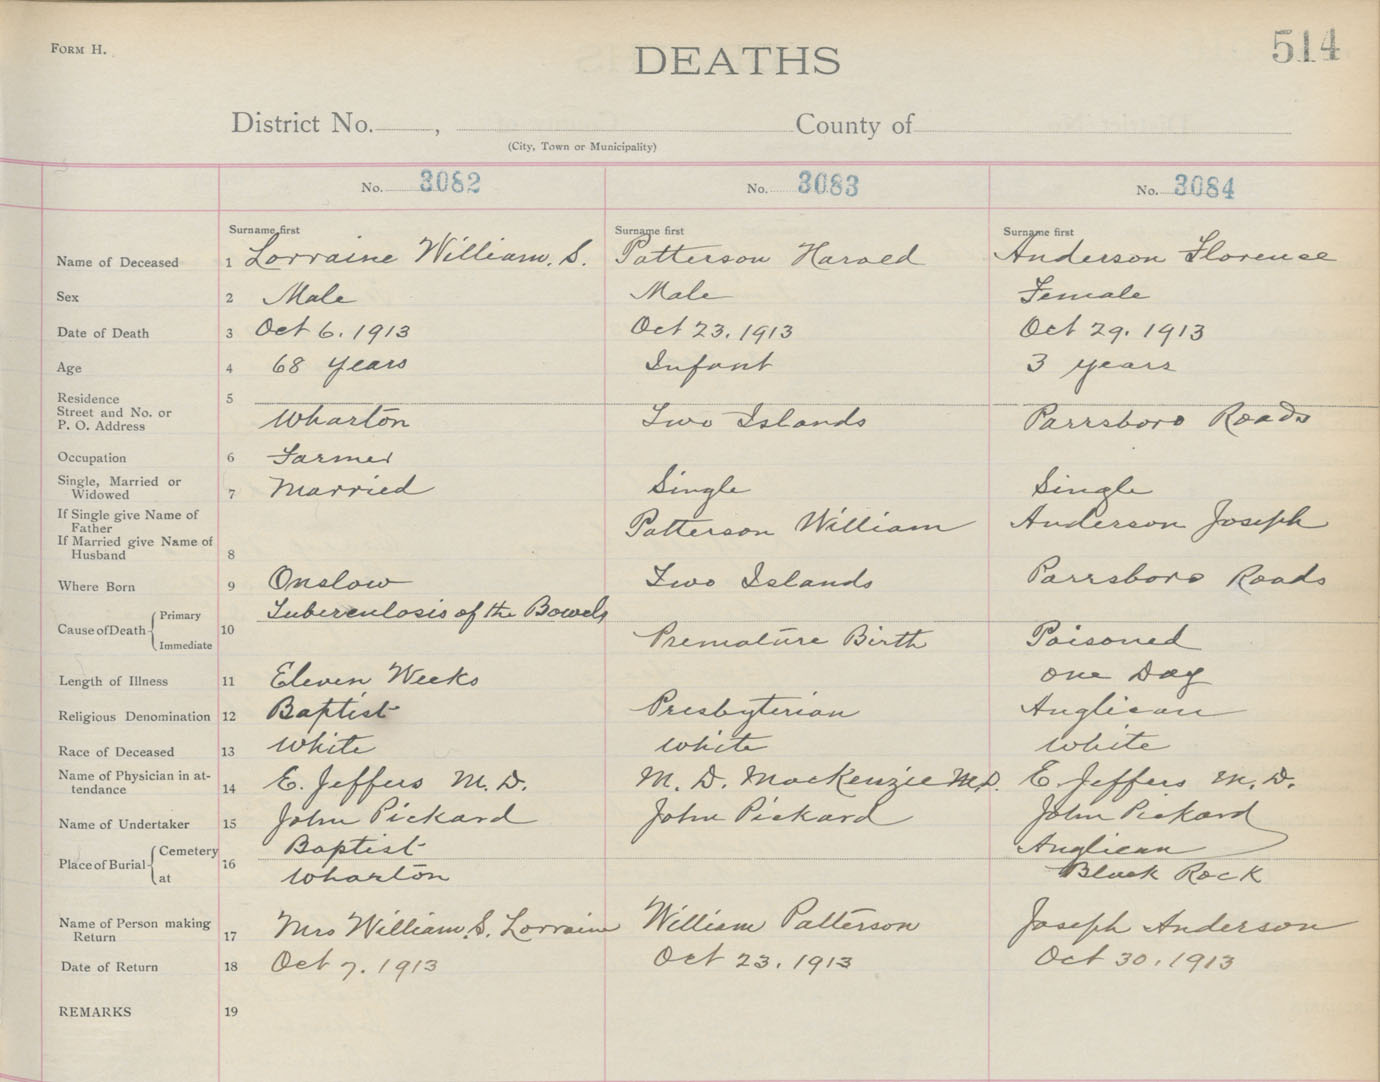 FORM H.
DEATHS
514
District No. , County of
(City, Town or Municipality)
No. 3082 No. 3083 No. 3084
Surname first Surname first Surname first
Name of Deceased 1 Lorraine William. S. Patterson Harold Anderson Florence
Sex 2 Male Male Female
Date of Death 3 Oct 6. 1913 Oct 23. 1913 Oct 29. 1913
Age 4 68 years Infant 3 years
Residence 5
Street and No. or
P. O. Address Wharton Two Islands Parrsboro Roads
Occupation 6 Farmer
Single, Married or
Widowed 7 Married Single Single
If Single give Name of
Father Patterson William Anderson Joseph
If Married give Name of
Husband 8
Where Born 9 Onslow Two Islands Parrsboro Roads
Cause of Death Primary Tuberculosis of the Bowels
10
Immediate Premature Birth Poisoned
Length of Illness 11 Eleven Weeks one Day
Religious Denomination 12 Baptist Presbyterian Anglican
Race of Deceased 13 White White White
Name of Physician in at-
tendance 14 E. Jeffers M. D. M. D. MacKenzie M.D. E. Jeffers M. D.
Name of Undertaker 15 John Pickard John Pickard John Pickard
Place of Burial Cemetery Baptist Anglican
16
at Wharton Black Rock
Name of Person making
Return 17 Mrs William. S. Lorraine William Patterson Joseph Anderson
Date of Return 18 Oct 7. 1913 Oct 23. 1913 Oct 30. 1913
REMARKS 19